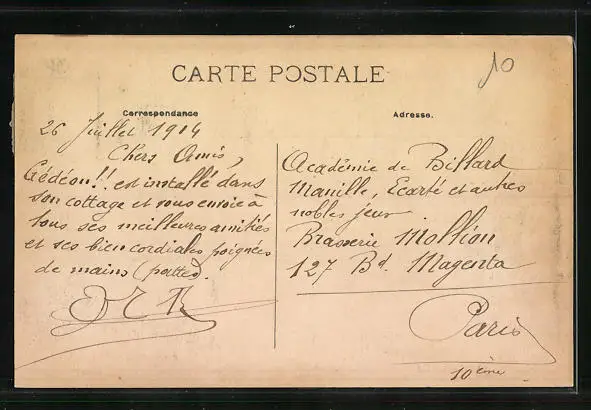 10
CARTE POSTALE
Correspondance
Adresse.
26 Juillet 1914
Chers Amis,
Gédéon!! est installé dans
son cottage et vous envoie à
tous ses meilleures amitiés
et ses bien cordiales poignées
de mains (pattes).
Académie de Billard
Manille, Ecarté et autres
nobles jeux
Brasserie Mollion
127 Bd. Magenta
Paris
10ème